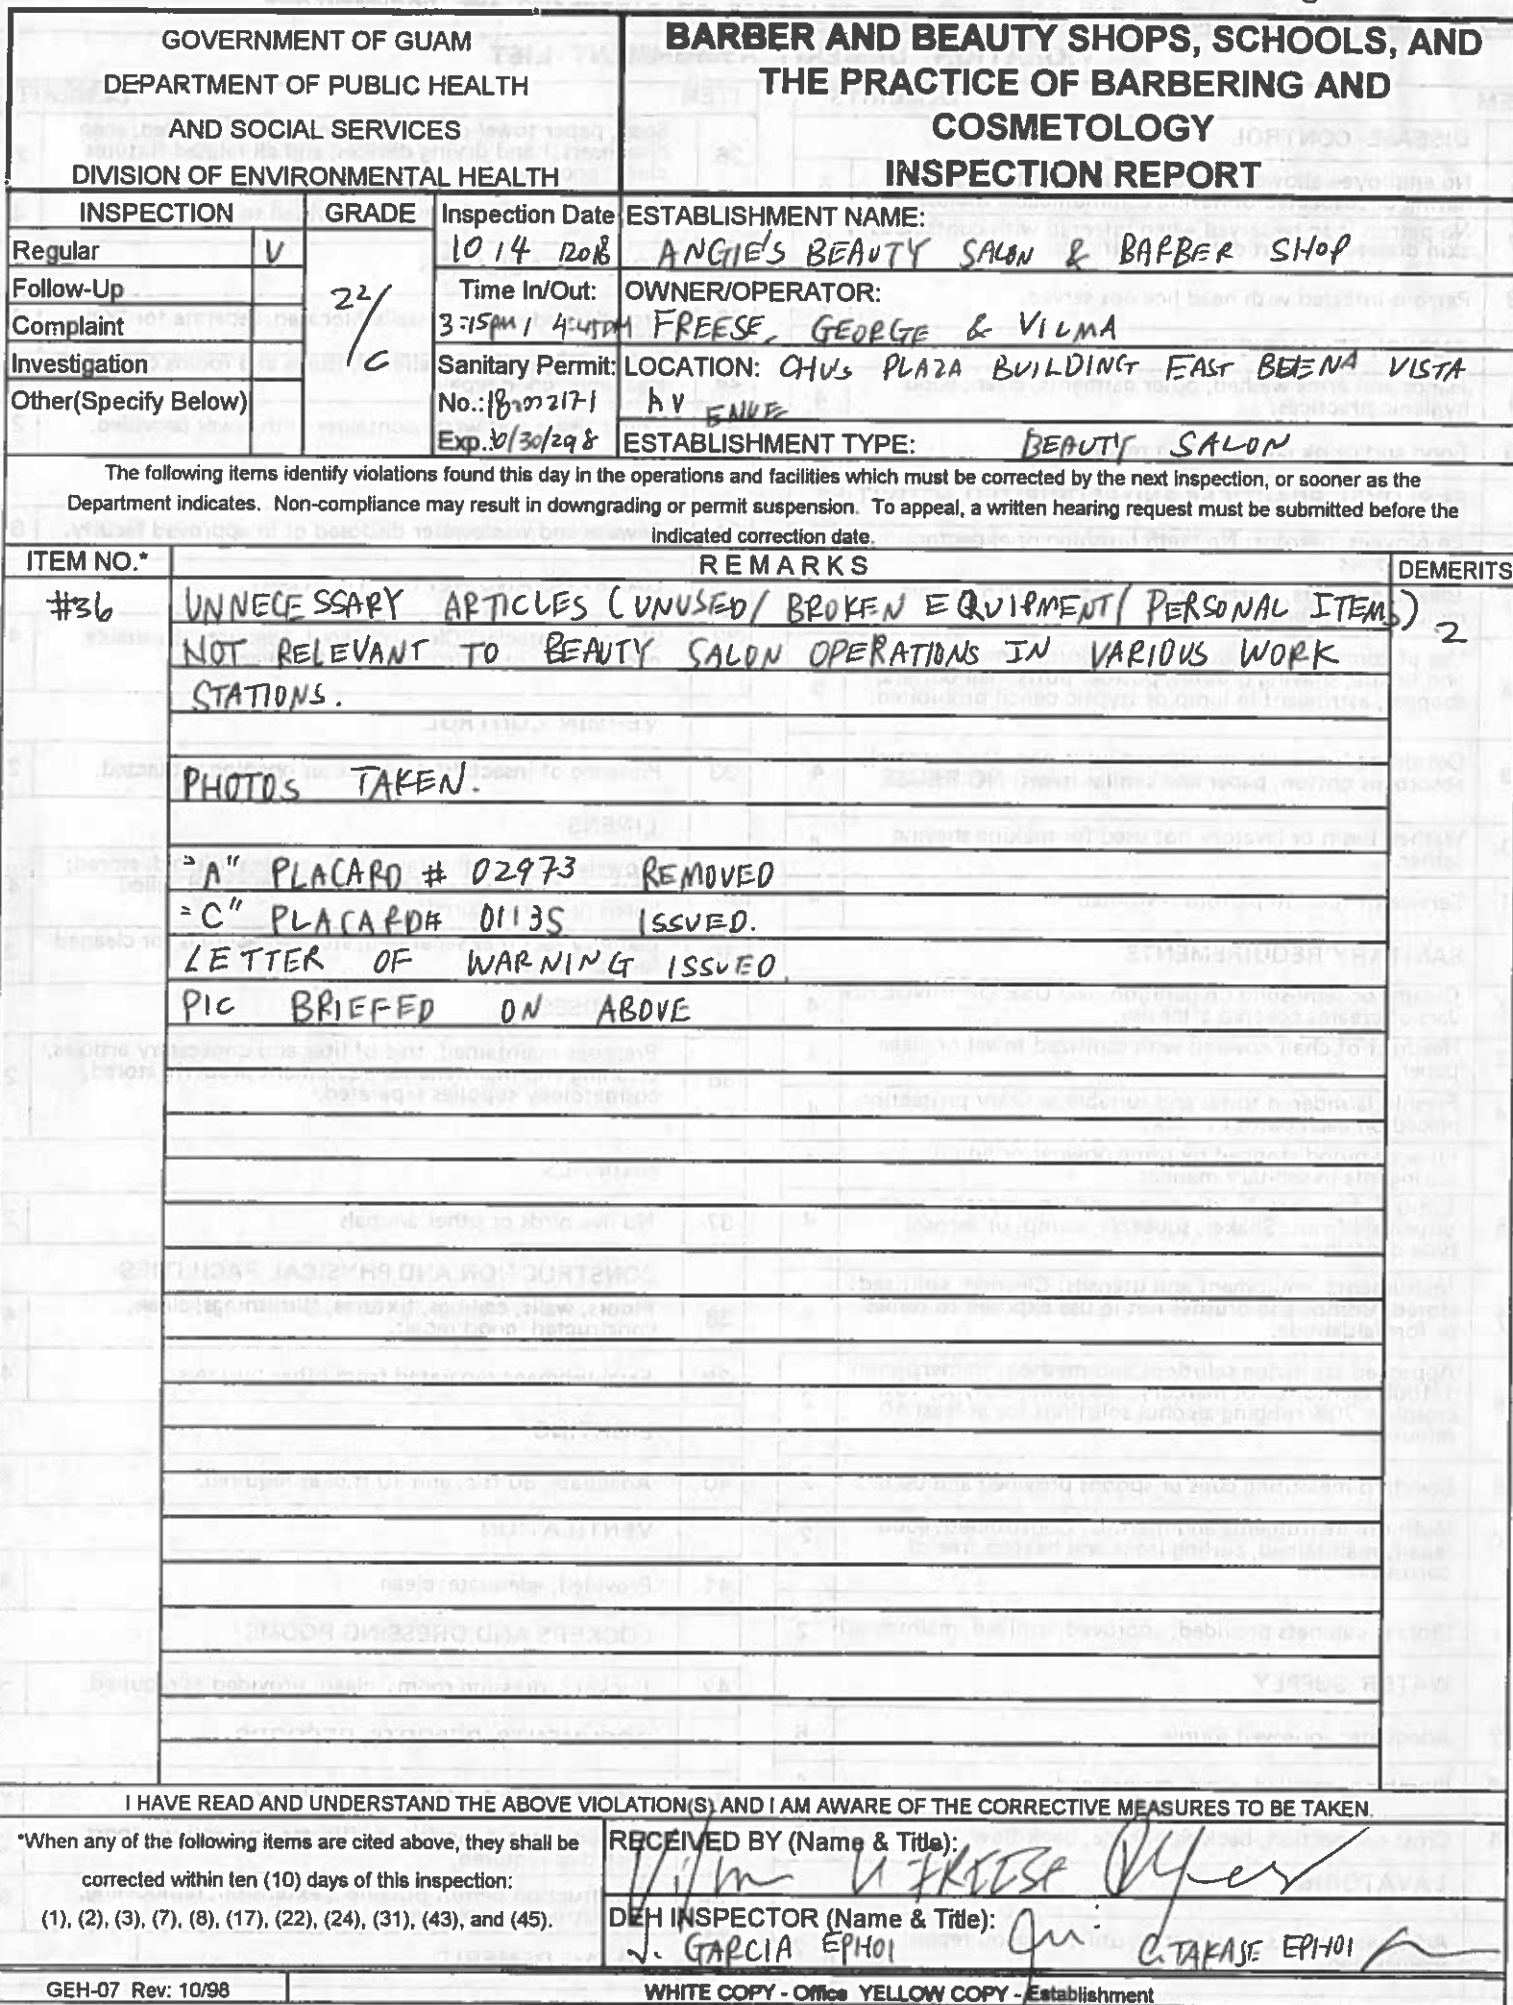 GOVERNMENT OF GUAM
DEPARTMENT OF PUBLIC HEALTH
AND SOCIAL SERVICES
DIVISION OF ENVIRONMENTAL HEALTH
BARBER AND BEAUTY SHOPS, SCHOOLS, AND
THE PRACTICE OF BARBERING AND
COSMETOLOGY
INSPECTION REPORT
INSPECTION
Regular V
Follow-Up
Complaint
Investigation
Other(Specify Below)
GRADE
22/C
Inspection Date
10 / 4 / 2018
Time In/Out:
3:15pm / 4:45pm
Sanitary Permit:
No.:
Exp.:
ESTABLISHMENT NAME:
ANGIE'S BEAUTY SALON & BARBER SHOP
OWNER/OPERATOR:
FREESE, GEORGE & VILMA
LOCATION: CHU'S PLAZA BUILDING EAST VISTA
AV ENUE
ESTABLISHMENT TYPE: BEAUTY SALON
The following items identify violations found this day in the operations and facilities which must be corrected by the next inspection, or sooner as the
Department indicates. Non-compliance may result in downgrading or permit suspension. To appeal, a written hearing request must be submitted before the
indicated correction date.
ITEM NO.* REMARKS DEMERITS
#36 UNNECESSARY ARTICLES (UNUSED/ BROKEN EQUIPMENT/ PERSONAL ITEMS) 2
NOT RELEVANT TO BEAUTY SALON OPERATIONS IN VARIOUS WORK
STATIONS.
PHOTOS TAKEN.
"A" PLACARD # 02973 REMOVED
"C" PLACARD# 01135 ISSUED.
LETTER OF WARNING ISSUED
PIC BRIEFED ON ABOVE
I HAVE READ AND UNDERSTAND THE ABOVE VIOLATION(S) AND I AM AWARE OF THE CORRECTIVE MEASURES TO BE TAKEN.
*When any of the following items are cited above, they shall be
corrected within ten (10) days of this inspection:
(1), (2), (3), (7), (8), (17), (22), (24), (31), (43), and (45).
RECEIVED BY (Name & Title):
FREESE
DEH INSPECTOR (Name & Title):
J. GARCIA EPHO1 C. TAKASE EPHO1
GEH-07 Rev: 10/98
WHITE COPY - Office YELLOW COPY - Establishment